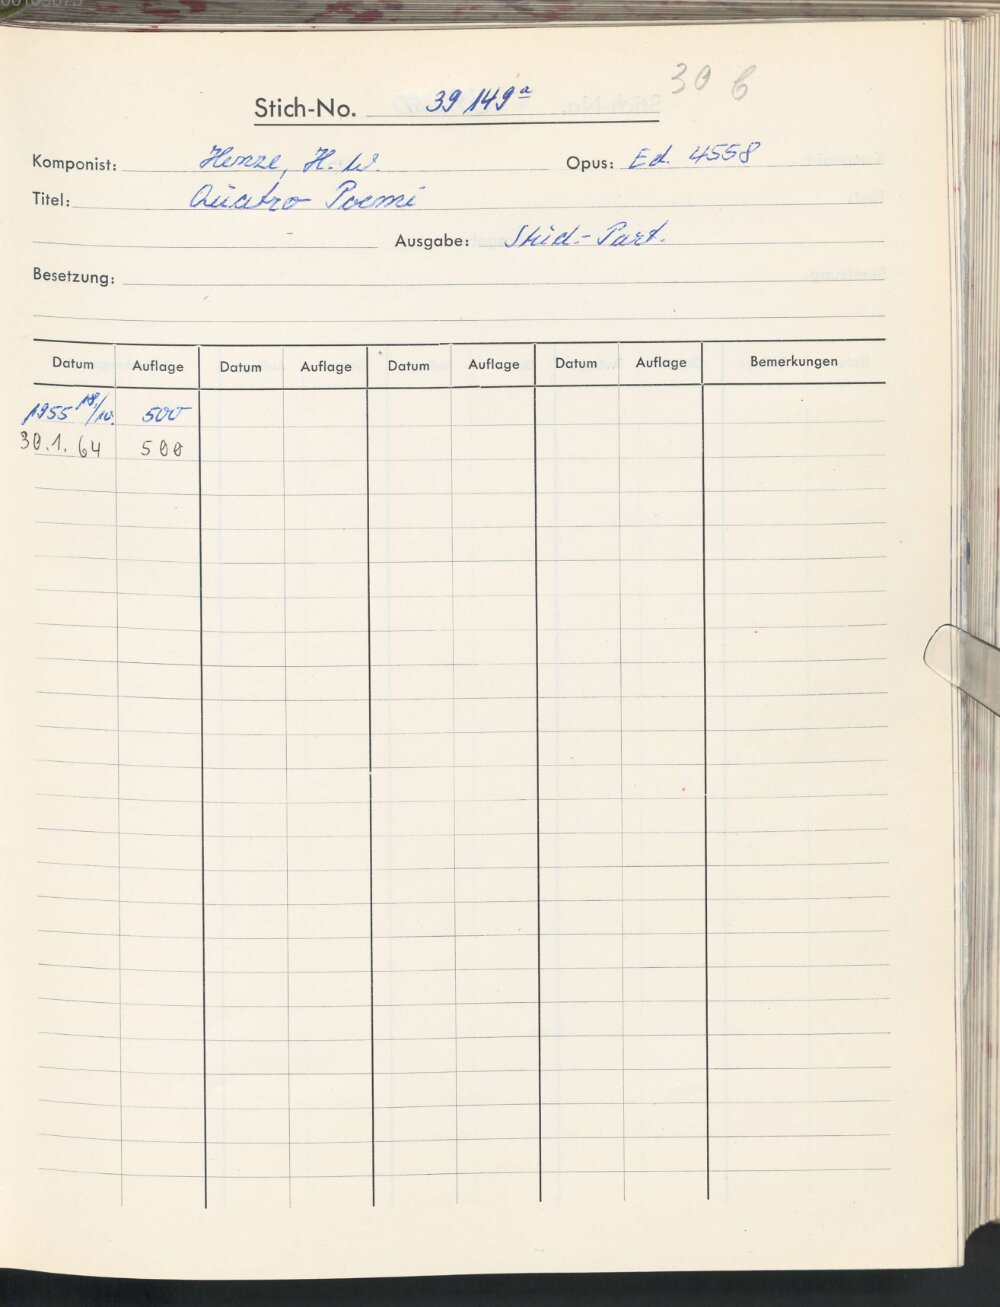 30 6
Stich-No. 39 149a
Komponist: Henze, H. W. Opus: Ed. 4558
Titel: Quatro Poemi
Ausgabe: Stud.-Part.
Besetzung:
Datum Auflage Datum Auflage Datum Auflage Datum Auflage Bemerkungen
1955 500
30.1.64 500